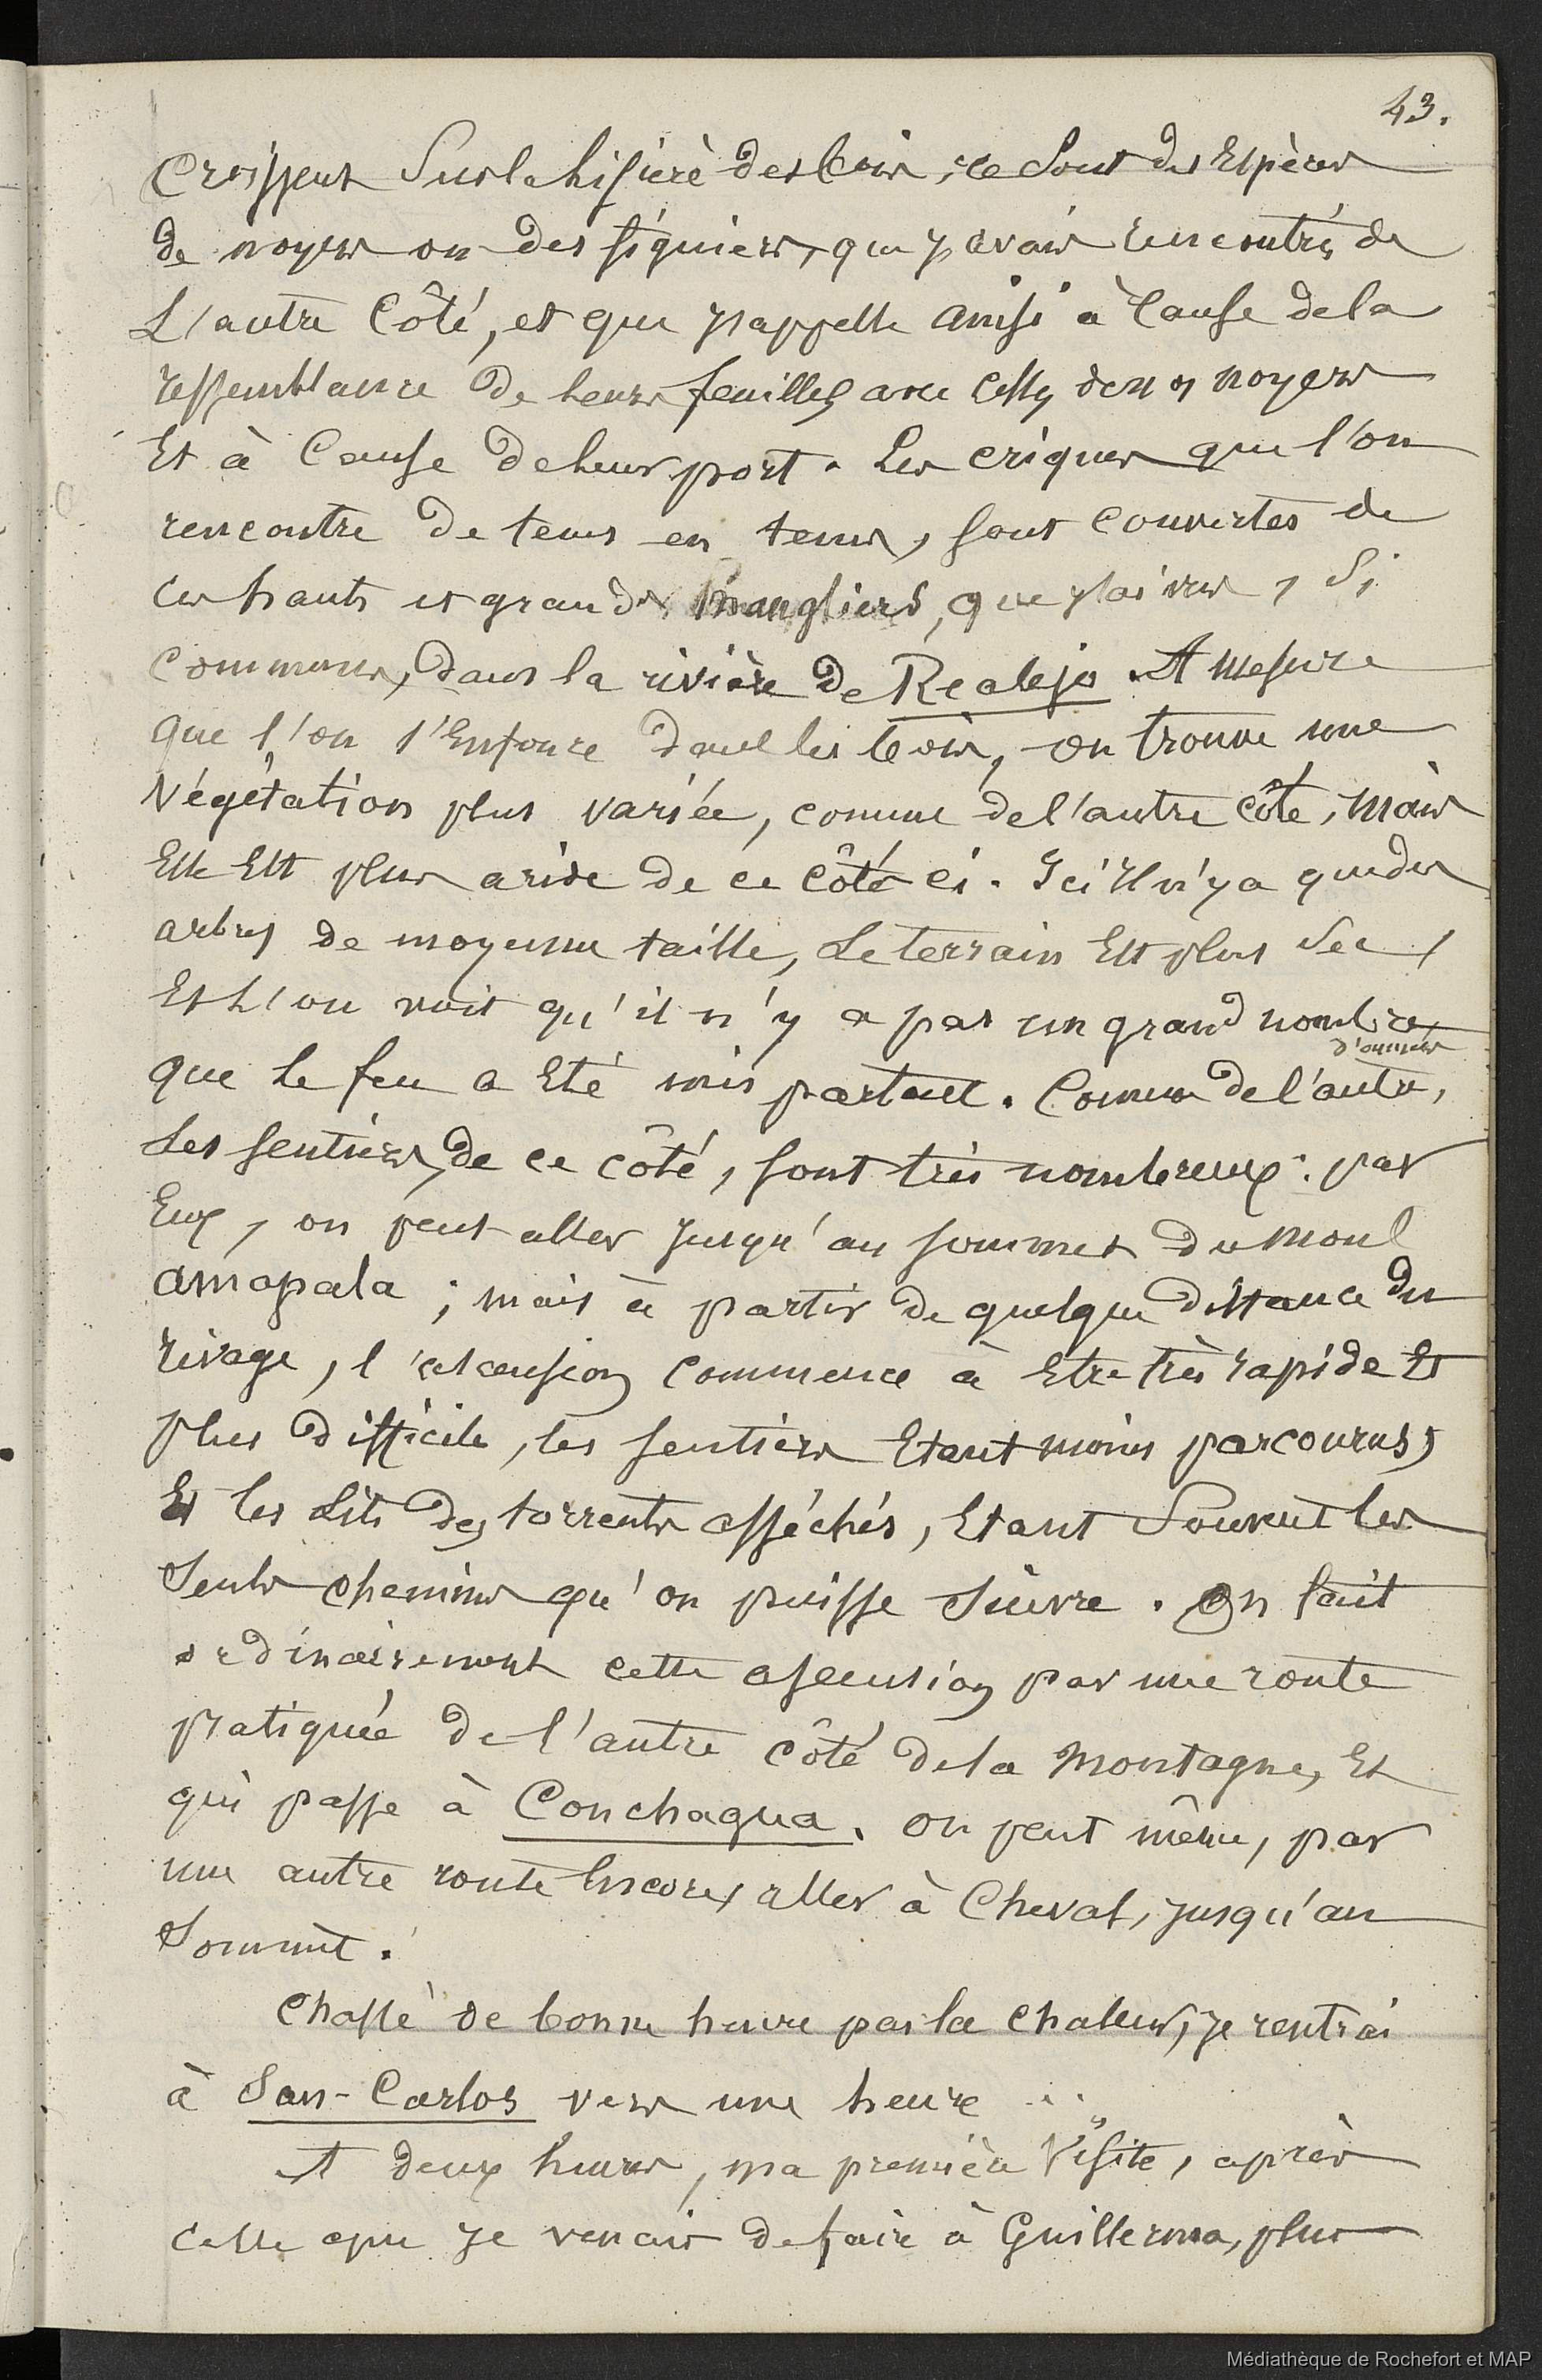 43.
Croissent sur la lisière des bois, ce sont des Espèces
de noyers ou des figuiers, que j'avais rencontrés de
L'autre Côté, et que j'appelle ainsi à Cause de la
ressemblance de leurs feuilles avec celles de nos noyers
Et à Cause de leur port. Les criques que l'on
rencontre de tems en tems, sont couvertes de
ces hauts et grands Mangliers, que j'ai vus, si
communs, dans la rivière de Realejo. A mesure
que l'on s'Enfonce dans les bois, on trouve une
Végétation plus variée, comme de l'autre côté, mais
Elle Est plus aride de ce côté ci. Ici Il n'y a que des
arbres de moyenne taille, Le terrain Est plus sec,
Et L'on voit qu'il n'y a pas un grand nombre
d'années
que le feu a Eté mis partout. Comme de l'autre,
Les sentiers, de ce côté, sont très nombreux. par
Eux, on peut aller jusqu'au sommet du Mont
amapala ; mais à partir de quelque distance du
rivage, l'ascension commence à Etre très rapide Et
plus difficile, les sentiers Etant moins parcourus,
Et les Lits des torrents asséchés, Etant Souvent les
Seuls chemins qu'on puisse suivre. On fait
ordinairement cette ascension par une route
pratiquée de l'autre côté de la Montagne, Et
qui passe à Conchagua. on peut même, par
une autre route Encore, aller à Cheval, jusqu'au
Sommet.
Chassé de bonne heure par la chaleur, je rentrai
à San-Carlos vers une heure ..
A deux heures, ma première Visite, après
celle que je venais de faire à Guillerma, plus
Médiathèque de Rochefort et MAP